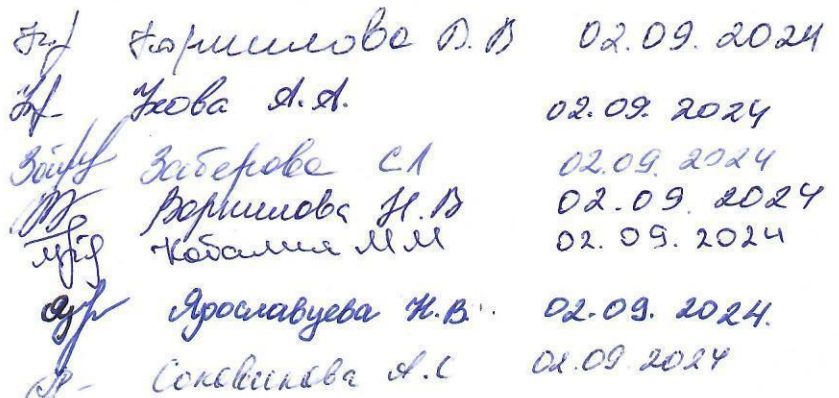 Корнилова В.В 02.09.2024
Ухова А.А. 02.09.2024
Заберова СЛ 02.09.2024
Ворнилова Н.В 02.09.2024
Кобалия ММ 02.09.2024
Ярославцева Н.В. 02.09.2024.
Соковикова А.С 02.09.2024